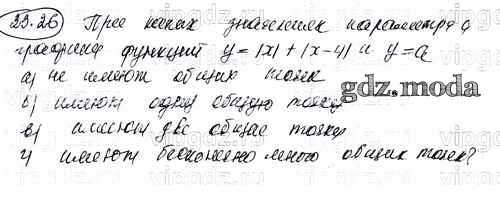 23.26 При каких значениях параметра a
графики функций y = |x| + |x-4| и y = a
а) не имеют общих точек
б) имеют одну общую точку
gdz.moda
в) имеют две общие точки
г) имеют бесконечно много общих точек?